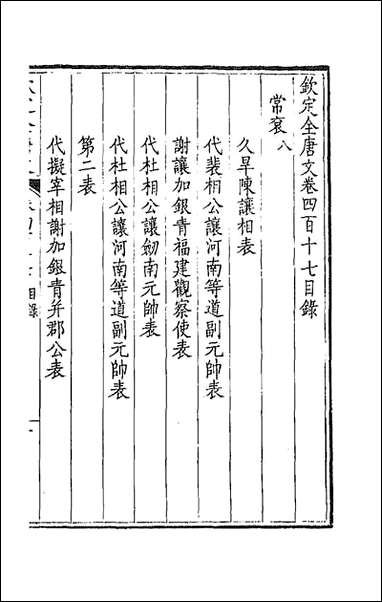 欽定全唐文卷四百十七目錄
常袞八
久旱陳讓相表
代裴相公讓河南等道副元帥表
謝讓加銀青福建觀察使表
代杜相公讓劒南元帥表
代杜相公讓河南等道副元帥表
第二表
代擬宰相謝加銀青并郡公表
目錄